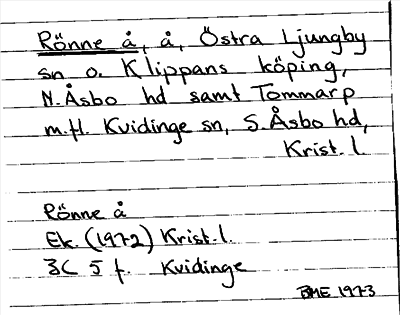 Rönne å, å, Östra Ljungby
sn o. Klippans köping,
N. Åsbo hd samt Tommarp
m.fl. Kvidinge sn, S. Åsbo hd,
Krist. l.
Rönne å
Ek. (1972) Krist. l.
3C 5 f. Kvidinge
BME 1973